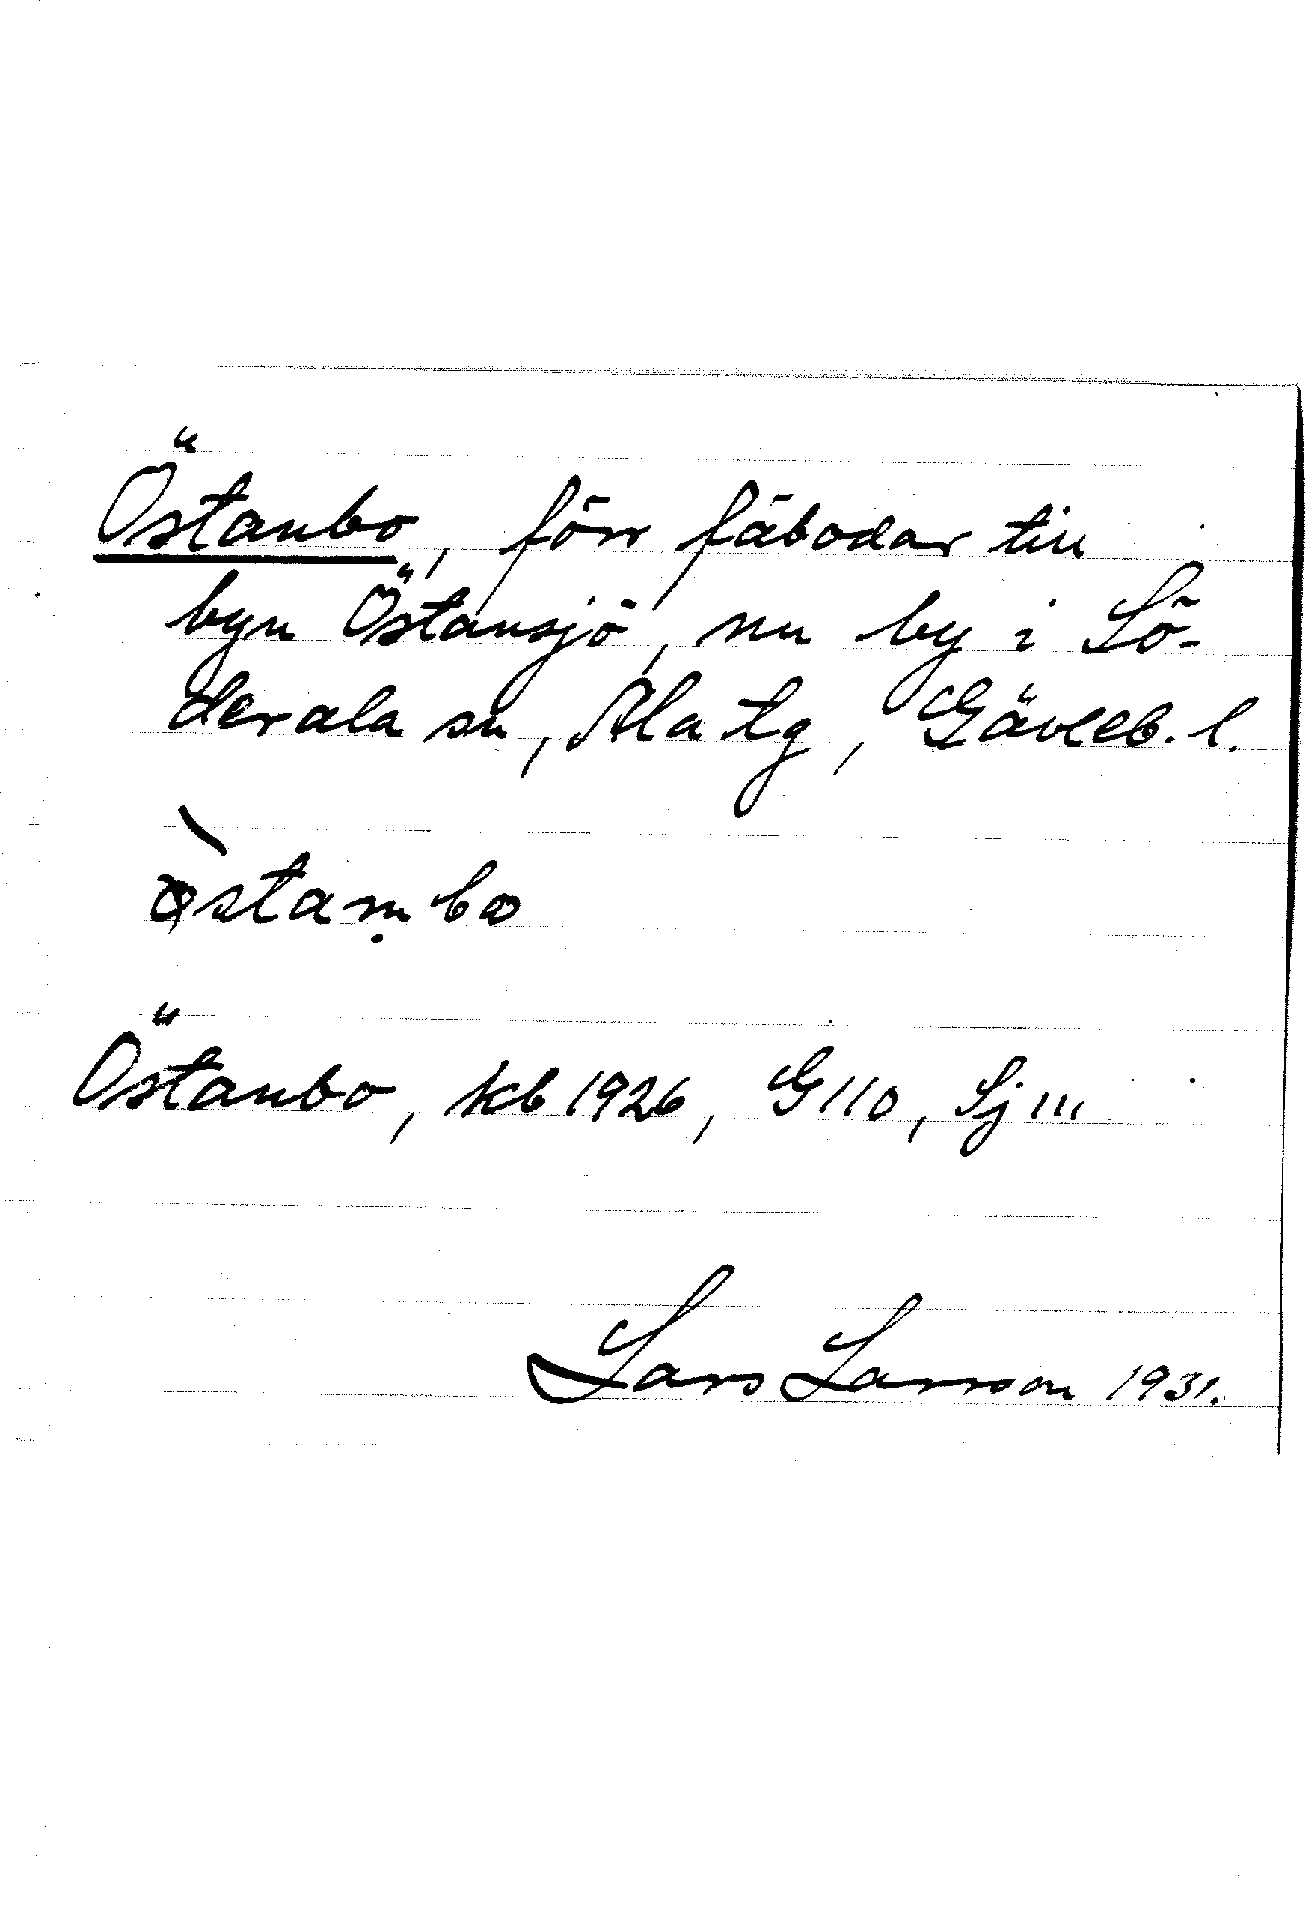 Östanbo, förr fäbodar till
byn Östansjö, nu by i Sö-
derala sn, Ala tg, Gävleb. l.
ö̀stam̩bo
Östanbo, kb 1926, G 110, Sj III
Lars Larsson 1931.